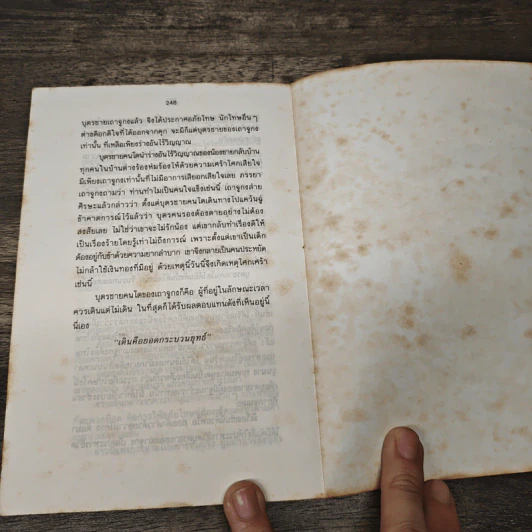 248
บุตรชายเถาจูกงแล้ว จึงได้ประกาศอภัยโทษ นักโทษอื่นๆ
ต่างดีอกดีใจที่ได้ออกจากคุก จะมีก็แต่บุตรชายของเถาจูกง
เท่านั้น ที่เหลือเพียงร่างอันไร้วิญญาณ
บุตรชายคนโตนำร่างอันไร้วิญญาณของน้องชายกลับบ้าน
ทุกคนในบ้านต่างร้องห่มร้องไห้ด้วยความเศร้าโศกเสียใจ
มีเพียงเถาจูกงเท่านั้นที่ไม่มีอาการเสียอกเสียใจเลย ภรรยา
เถาจูกงถามว่า ท่านทำไมเป็นคนใจแข็งเช่นนี้ เถาจูกงส่าย
ศีรษะแล้วกล่าวว่า ตั้งแต่บุตรชายคนโตเดินทางไปแคว้นฉู่
ข้าคาดการณ์ไว้แล้วว่า บุตรคนรองต้องตายอย่างไม่ต้อง
สงสัยเลย ไม่ใช่ว่าเขาจะไม่รักน้อง แต่เขากลับทำเรื่องดีให้
เป็นเรื่องร้ายโดยรู้เท่าไม่ถึงการณ์ เพราะตั้งแต่เขาเป็นเด็ก
ต้องอยู่กับข้าด้วยความยากลำบาก เขาจึงกลายเป็นคนประหยัด
ไม่กล้าใช้เงินทองที่มีอยู่ ด้วยเหตุนี้วันนี้จึงเกิดเหตุโศกเศร้า
เช่นนี้
บุตรชายคนโตของเถาจูกงก็คือ ผู้ที่อยู่ในลักษณะเวลา
ควรเดินแต่ไม่เดิน ในที่สุดก็ได้รับผลตอบแทนดังที่เห็นอยู่นี้
นี่เอง
“เดินคือยอดกระบวนยุทธ์”